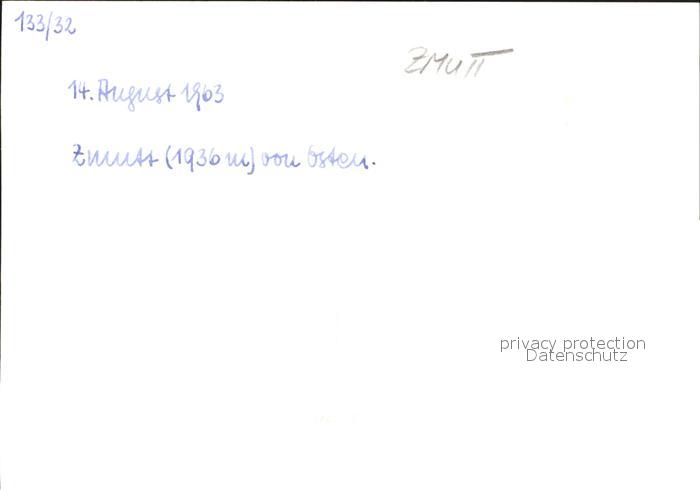 133/32
ZMUTT
14. August 1963
Zmutt (1936 m) von Osten.
privacy protection
Datenschutz